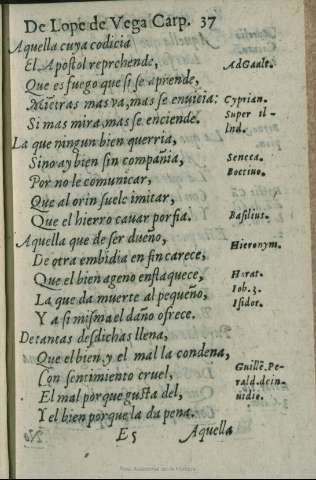 De Lope de Vega Carp. 37
Aquella cuya codicia
El Apostol reprehende, Ad Galat.
Que es fuego que si se aprende,
Miētras mas va, mas se envicia: Cyprian.
Si mas mira, mas se enciende. Super il-
lud.
La que ningun bien querria,
Sino ay bien sin compañia, Seneca.
Por no le comunicar, Boetius.
Que al orin suele imitar,
Que el hierro cauar porfia. Basilius.
Aquella que de ser dueño, Hieronym.
De otra embidia en fin carece,
Que el bien ageno enflaquece, Horat.
La que da muerte al pequeño, Iob. 3.
Y a si misma el daño ofrece. Isidor.
De tantas desdichas llena,
Que el bien, y el mal la condena,
Con sentimiento cruel, Guillē. Pe-
rald. de in-
El mal porque gusta del, uidie.
Y el bien porque la da pena.
E5 Aquella